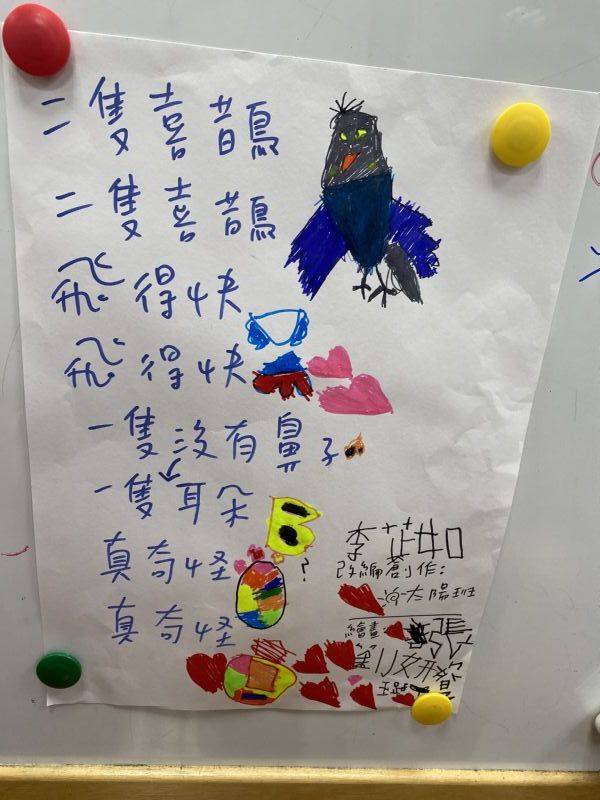 二隻喜鵲
二隻喜鵲
飛得快
飛得快
一隻沒有鼻子
一隻耳朵
真奇怪
真奇怪
?
李芷如
改編創作:
太陽班
繪畫
張
劉